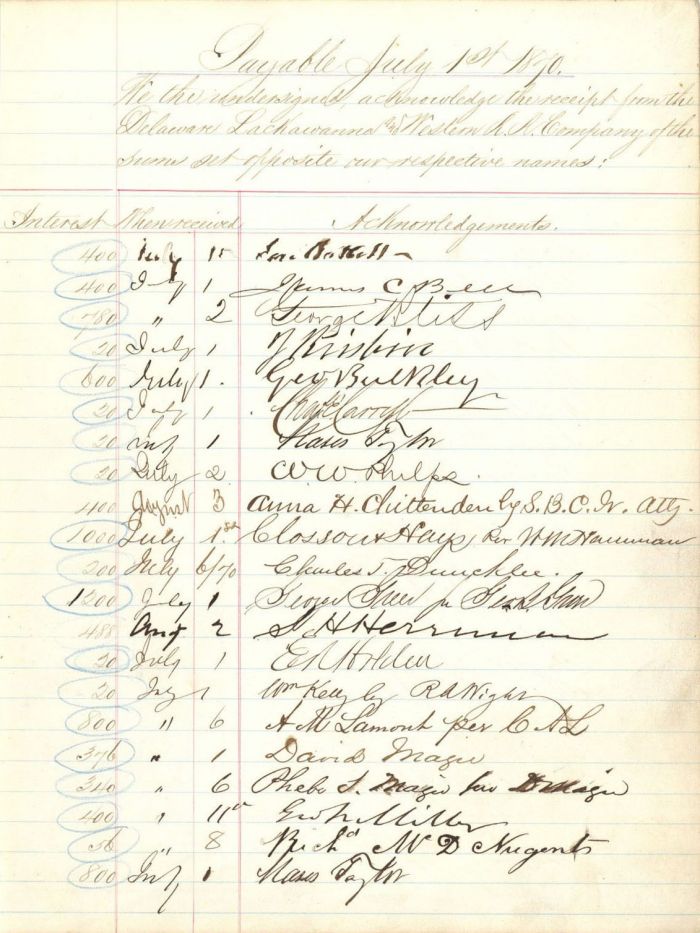 Payable July 1st 1870.
We the undersigned, acknowledge the receipt from the
Delaware Lackawanna & Western R.R. Company of the
sum set opposite our respective names:
Interest When received Acknowledgements.
400 July 1
400 July 1 James C Bell
780 " 2 George Bliss
20 July 1
600 July 1. Geo Bulkley
20 July 1
20 July 1 Moses Taylor
20 July 2 W W Phelps.
400 August 3 Anna H. Chittenden by S. B. C. Jr. Atty.
1000 July 1st Closson & Hays per
200 July 6/70 Charles T. Dunchlee.
1200 July 1
488 Aug 2 S H Herriman
20 July 1 E S Holden
20 July 1 Wm Kelly by R A Wight
800 " 6 A M Lamont per C A L
376 " 1 David Magie
340 " 6 Phebe T. Magie per D Magie
400 " 11 Geo N Miller
56 " 8 Richd Mc D Nugents
800 July 1 Moses Taylor